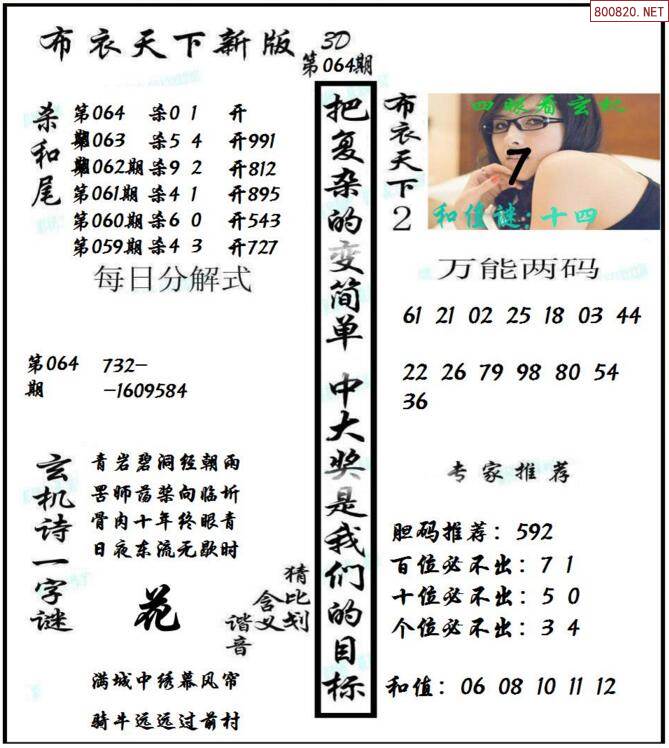 800820.NET
布衣天下新版 3D
第064期
杀和尾
第064期 杀0 1 开
第063期 杀5 4 开991
第062期 杀9 2 开812
第061期 杀4 1 开895
第060期 杀6 0 开543
第059期 杀4 3 开727
每日分解式
第064期 732-
-1609584
玄机诗一字谜
青岩碧洞经朝雨
罟师荡桨向临圻
骨肉十年终眼青
日夜东流无歇时
花
猜比划
含义
谐音
满城中绣幕风帘
骑牛远远过前村
把复杂的变简单 中大奖是我们的目标
布衣天下2
四眼看玄机
7
和值谜:十四
万能两码
61 21 02 25 18 03 44
22 26 79 98 80 54
36
专家推荐
胆码推荐：592
百位必不出：7 1
十位必不出：5 0
个位必不出：3 4
和值：06 08 10 11 12